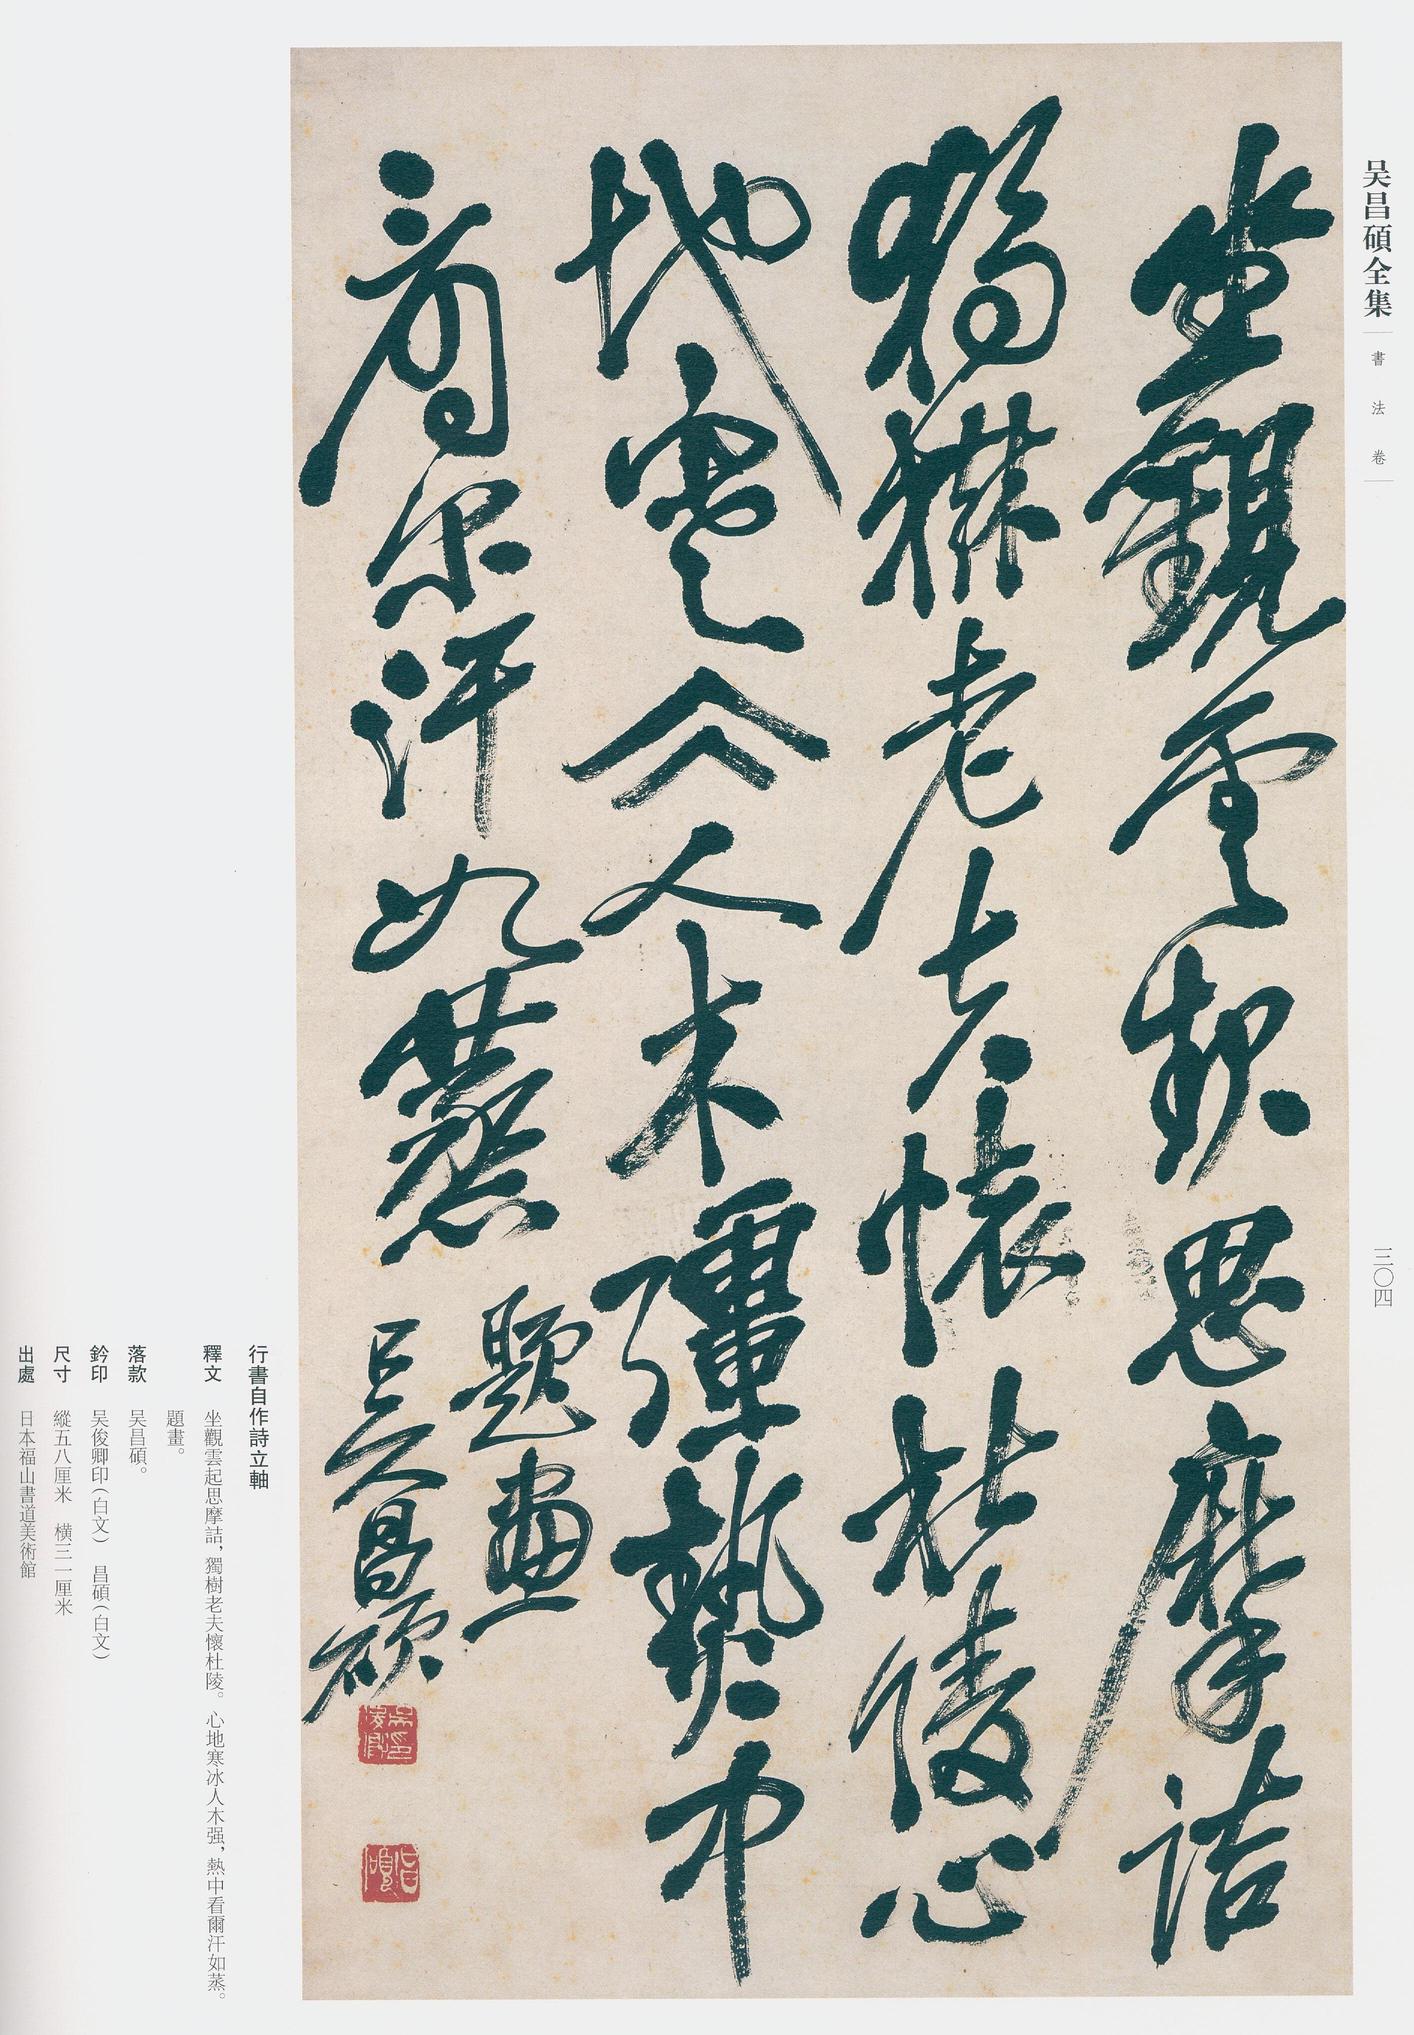 吴昌碩全集
書法卷
三〇四
坐觀雲起思摩詰
獨樹老夫懷杜陵心
地寒冰人木彊熱中
看尔汗如蒸
題畫
吴昌碩
行書自作詩立軸
釋文 坐觀雲起思摩詰，獨樹老夫懷杜陵。心地寒冰人木强，熱中看爾汗如蒸。
題畫。
落款 吴昌碩。
鈐印 吴俊卿印（白文） 昌碩（白文）
尺寸 縱五八厘米 橫三一厘米
出處 日本福山書道美術館